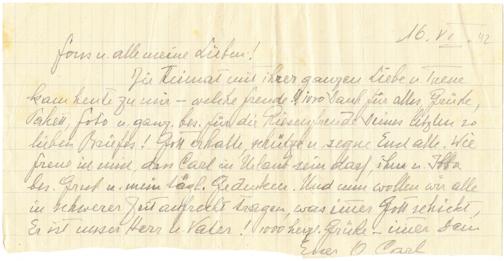 16. VI. 42
u. alle meine Lieben!
Die Heimat mit ihrer ganzen Liebe u. Treue
kam heute zu mir – welche Freude! 1000 Dank für alles, Grüße,
Paket, Foto u. ganz bes. für die Riesenfreude Deines letzten so
lieben Briefes! Gott erhalte, schütze u. segne Euch alle. Wie
freue ich mich, dass Carl in Urlaub sein darf, ihm u.
bes. Gruß u. mein tägl. Gedenken. Und nun wollen wir alle
in schwerer Zeit aufrecht tragen, was immer Gott schickt,
Er ist unser Herr u. Vater! 1000 herzl. Grüße –
Euer O Carl